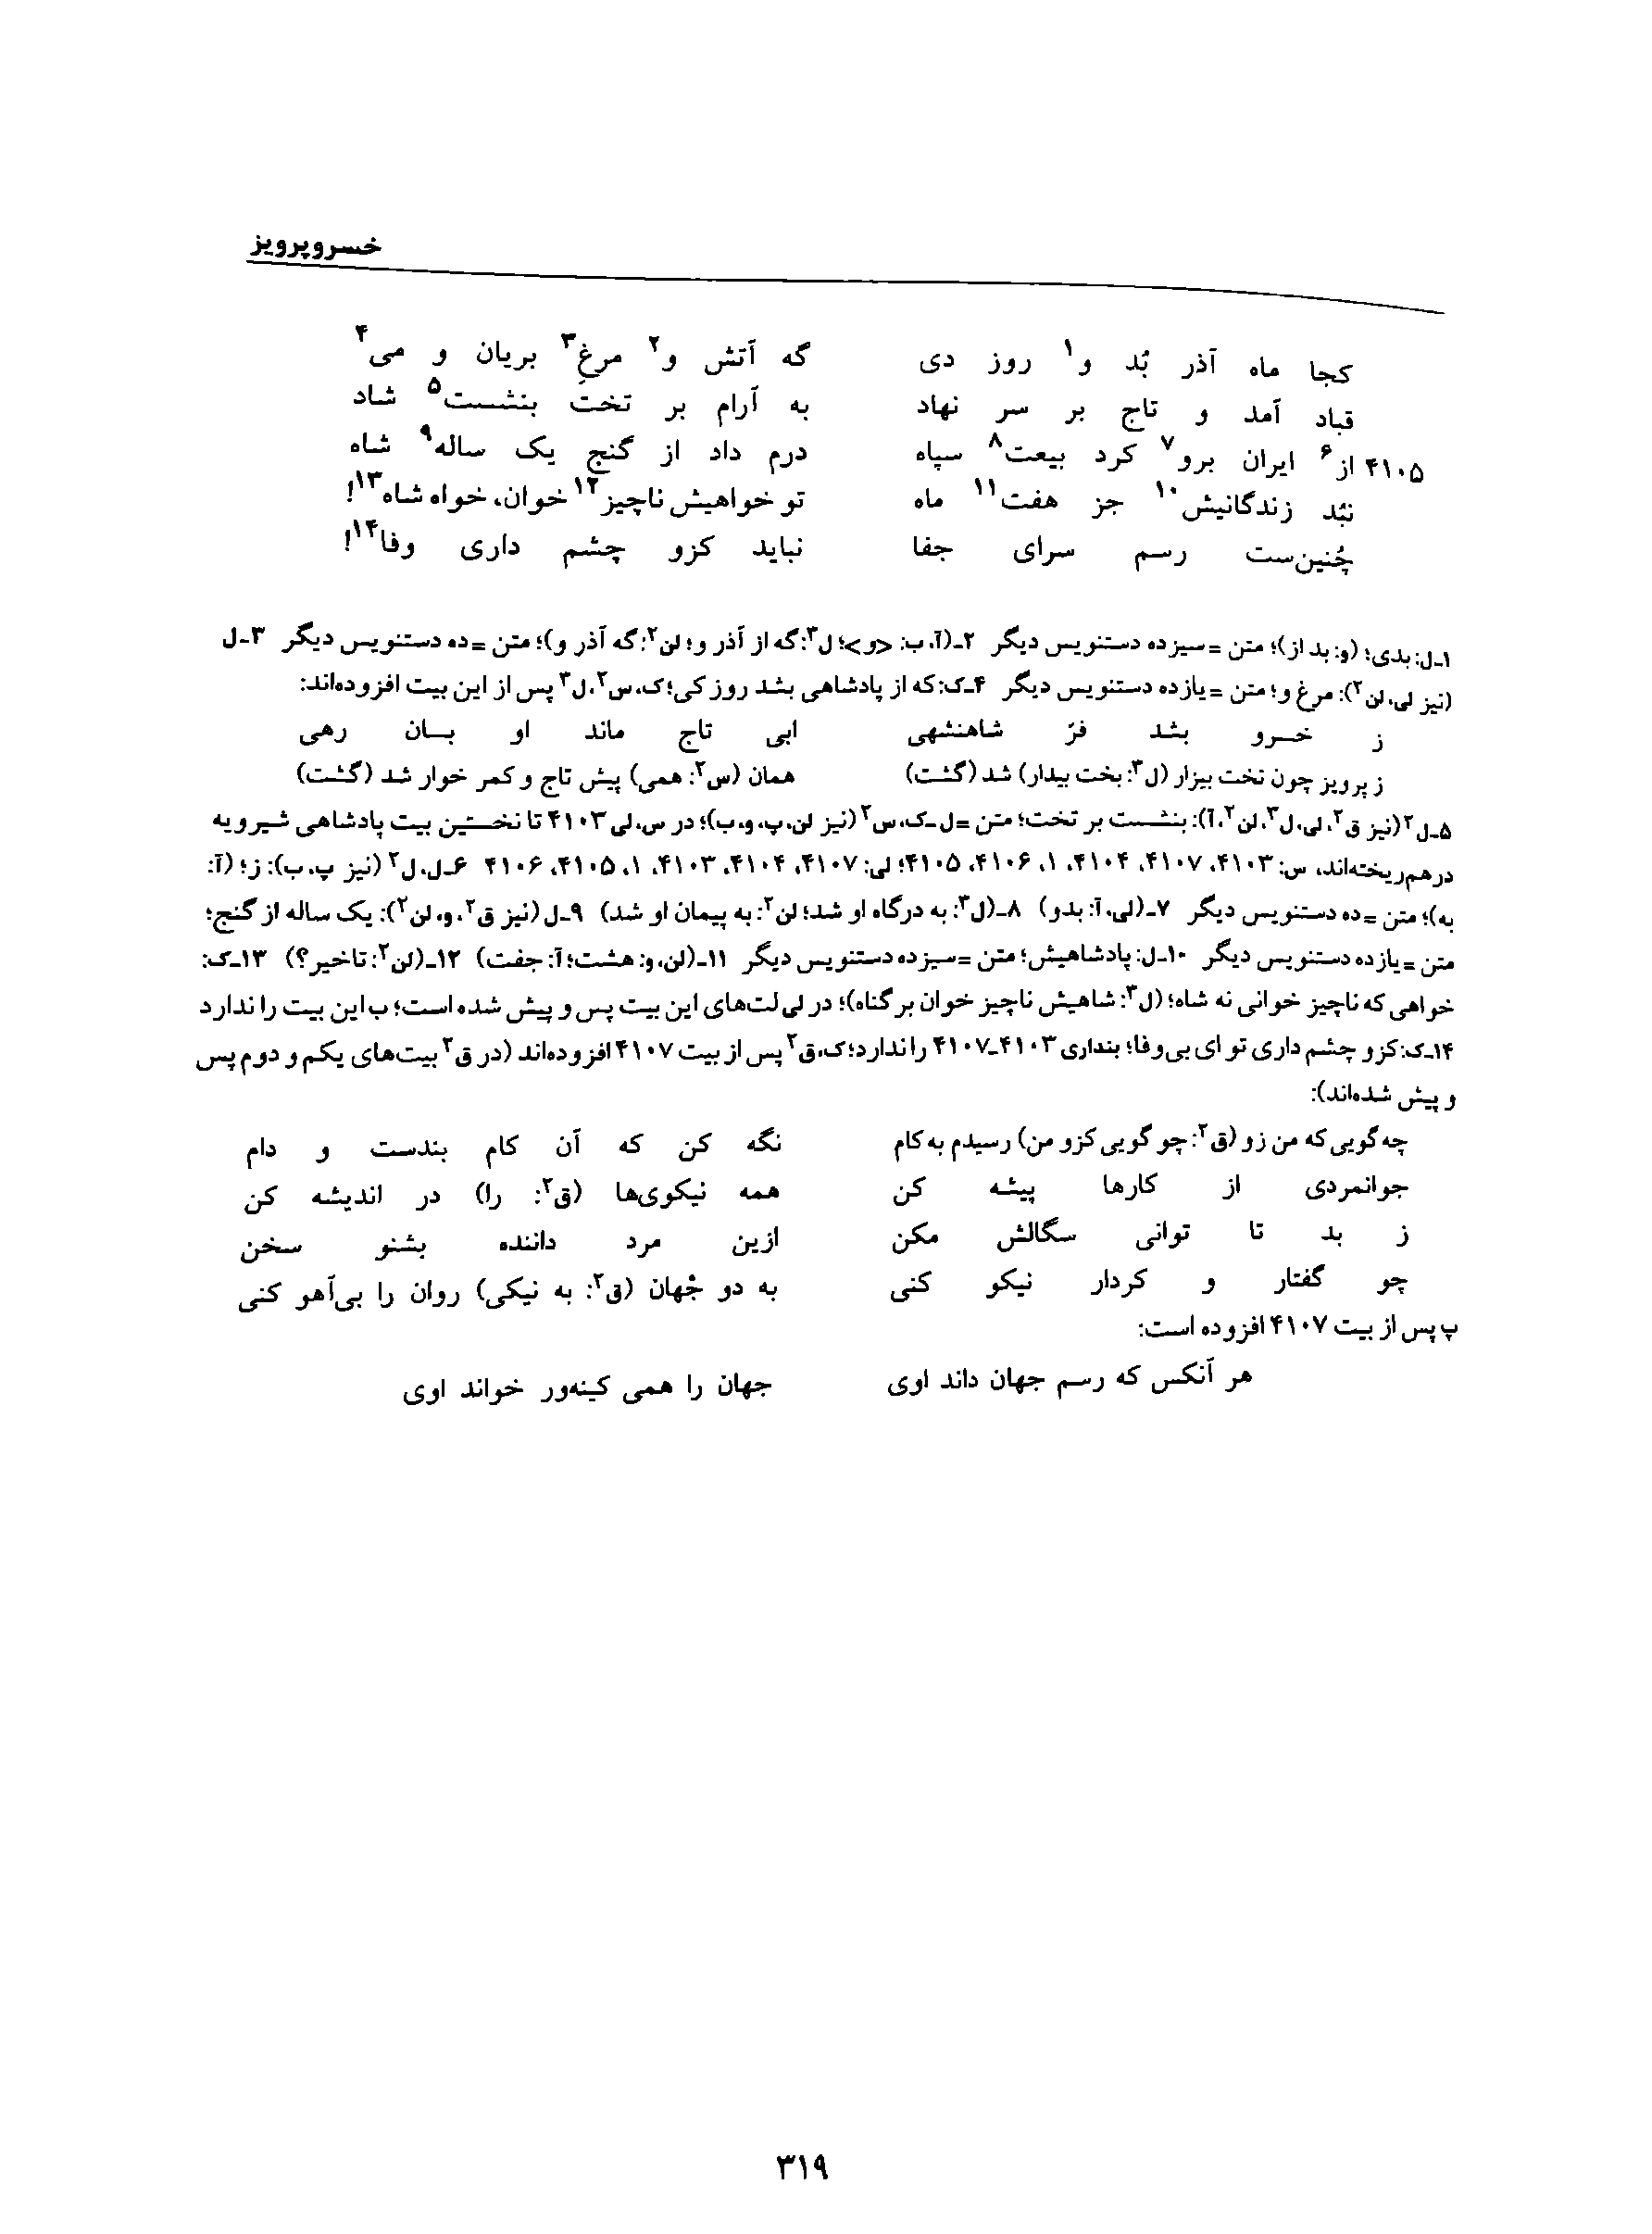 خسروپرویز
کجا ماه آذر بُد و۱ روز دی گه آتش و۲ مرغِ۳ بریان و می۴
قباد آمد و تاج بر سر نهاد به آرام بر تخت بنشست۵ شاد
۴۱۰۵ از۶ ایران برو۷ کرد بیعت۸ سپاه درم داد از گنج یک ساله۹ شاه
نبُد زندگانیش۱۰ جز هفت۱۱ ماه تو خواهیش ناچیز۱۲ خوان، خواه شاه۱۳!
چُنین‌ست رسم سرای جفا نباید کزو چشم داری وفا۱۴!
۱ـ‌ل: بدی؛ (و: بد از)؛ متن = سیزده دستنویس دیگر ۲ـ‌(آ، ب: <و>؛ ل۳: گه از آذر و؛ لن۲: گه آذر و)؛ متن = ده دستنویس دیگر ۳ـ‌ل
(نیز لی، لن۲): مرغ و؛ متن = یازده دستنویس دیگر ۴ـ‌ک: که از پادشاهی بشد روز کی؛ ک، س۲، ل۳ پس از این بیت افزوده‌اند:
ز خسرو بشد فرّ شاهنشهی ابی تاج ماند او بسان رهی
ز پرویز چون تخت بیزار (ل۳: بخت بیدار) شد (گشت) همان (س۲: همی) پیش تاج و کمر خوار شد (گشت)
۵ـ‌ل۲ (نیز ق۲، لی، ل۳، لن۲، آ): بنشست بر تخت؛ متن = ل ـ ک، س۲ (نیز لن، پ، و، ب)؛ در س، لی ۴۱۰۳ تا نخستین بیت پادشاهی شیرویه
درهم‌ریخته‌اند، س: ۴۱۰۳، ۴۱۰۷، ۴۱۰۴، ۱، ۴۱۰۶، ۴۱۰۵؛ لی: ۴۱۰۷، ۴۱۰۴، ۴۱۰۳، ۱، ۴۱۰۵، ۴۱۰۶ ۶ـ‌ل، ل۲ (نیز پ، ب): ز؛ (آ:
به)؛ متن = ده دستنویس دیگر ۷ـ‌(لی، آ: بدو) ۸ـ‌(ل۳: به درگاه او شد؛ لن۲: به پیمان او شد) ۹ـ‌ل (نیز ق۲، و، لن۲): یک ساله از گنج؛
متن = یازده دستنویس دیگر ۱۰ـ‌ل: پادشاهیش؛ متن = سیزده دستنویس دیگر ۱۱ـ‌(لن، و: هشت؛ آ: جفت) ۱۲ـ‌(لن۲: تاخیر؟) ۱۳ـ‌ک:
خواهی که ناچیز خوانی نه شاه؛ (ل۳: شاهیش ناچیز خوان بر گناه)؛ در لی لت‌های این بیت پس و پیش شده است؛ ب این بیت را ندارد
۱۴ـ‌ک: کزو چشم داری تو ای بی‌وفا؛ بنداری ۴۱۰۳ـ۴۱۰۷ را ندارد؛ ک، ق۲ پس از بیت ۴۱۰۷ افزوده‌اند (در ق۲ بیت‌های یکم و دوم پس
و پیش شده‌اند):
چه گویی که من زو (ق۲: چو گویی کزو من) رسیدم به کام نگه کن که آن کام بندست و دام
جوانمردی از کارها پیشه کن همه نیکوی‌ها (ق۲: را) در اندیشه کن
ز بد تا توانی سگالش مکن ازین مرد داننده بشنو سخن
چو گفتار و کردار نیکو کنی به دو جُهان (ق۲: به نیکی) روان را بی‌آهو کنی
پ پس از بیت ۴۱۰۷ افزوده است:
هر آنکس که رسم جهان داند اوی جهان را همی کینه‌ور خواند اوی
۳۱۹